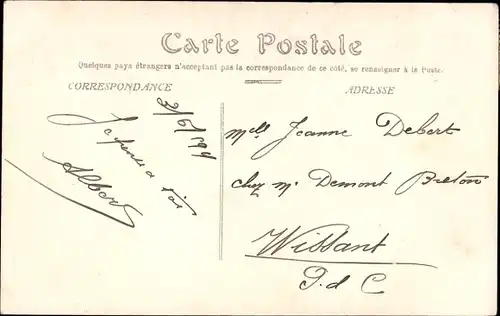 Carte Postale
Quelques pays étrangers n'acceptant pas la correspondance de ce côté, se renseigner à la Poste.
CORRESPONDANCE
Je pense a toi
Albert
ADRESSE
Melle Jeanne Debert
chez Mr Demont Breton
Wissant
P. d C